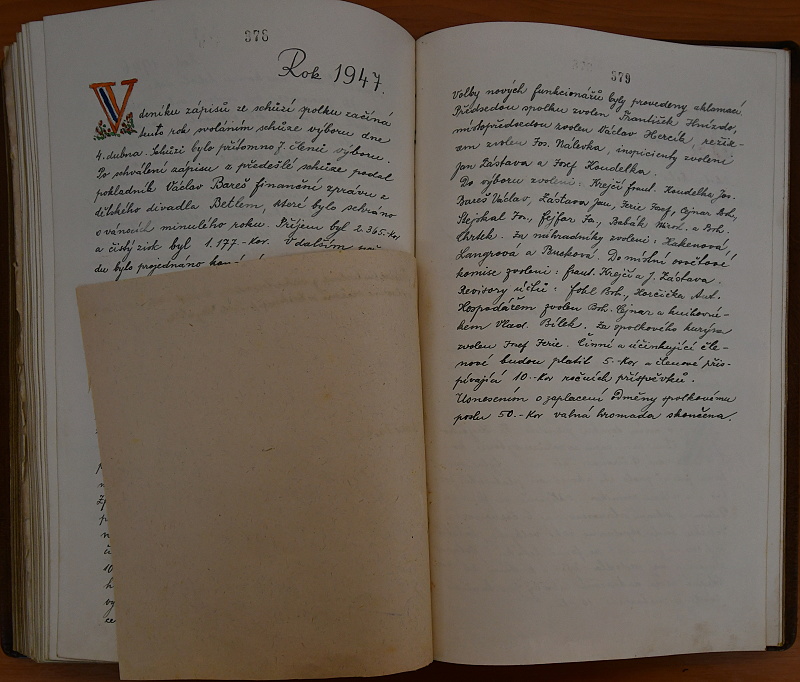 378
Rok 1947.
V deníku zápisů ze schůzí spolku začíná
tento rok svoláním schůze výboru dne
4. dubna. Schůzi bylo přítomno 7 členů výboru.
Po schválení zápisu z předešlé schůze podal
pokladník Václav Bareš finanční zprávu z
dětského divadla Betlem, které bylo sehráno
o vánocích minulého roku. Příjem byl 2.365.-Kor
a čistý zisk byl 1.177.-Kor. V dalším
du bylo projednáno
379
Volby nových funkcionářů byly provedeny aklamací
Předsedou spolku zvolen František Hnízdo,
místopředsedou zvolen Václav Hercík, režisé-
rem zvolen Jos. Nálevka, inspicienty zvoleni
Jan Zástava a Josef Koudelka.
Do výboru zvoleni: Krejčí Frant. Koudelka Jos.
Bareš Václav, Zástava Jan, Ferie Josef, Cejnar Boh.,
Stejskal Jos., Fejfar Fr., Babák Mirosl. a Boh.
Chrtek. Za náhradníky zvoleni: Hakenová
Langrová a Bucková. Do místní osvětové
komise zvoleni: frant. Krejčí a J. Zástava.
Revisory účtů: Fohl Boh., Horčička Ant.
Hospodářem zvolen Boh. Cejnar a knihovní-
kem Vlad. Bílek. Za spolkového kurýra
zvolen Josef Ferie. Činní a účinkující čle-
nové budou platit 5.-Kor a členové přis-
pívající 10.-Kor ročních příspěvků.
Usnesením o zaplacení odměny spolkovému
poslu 50.-Kor valná hromada skončena.